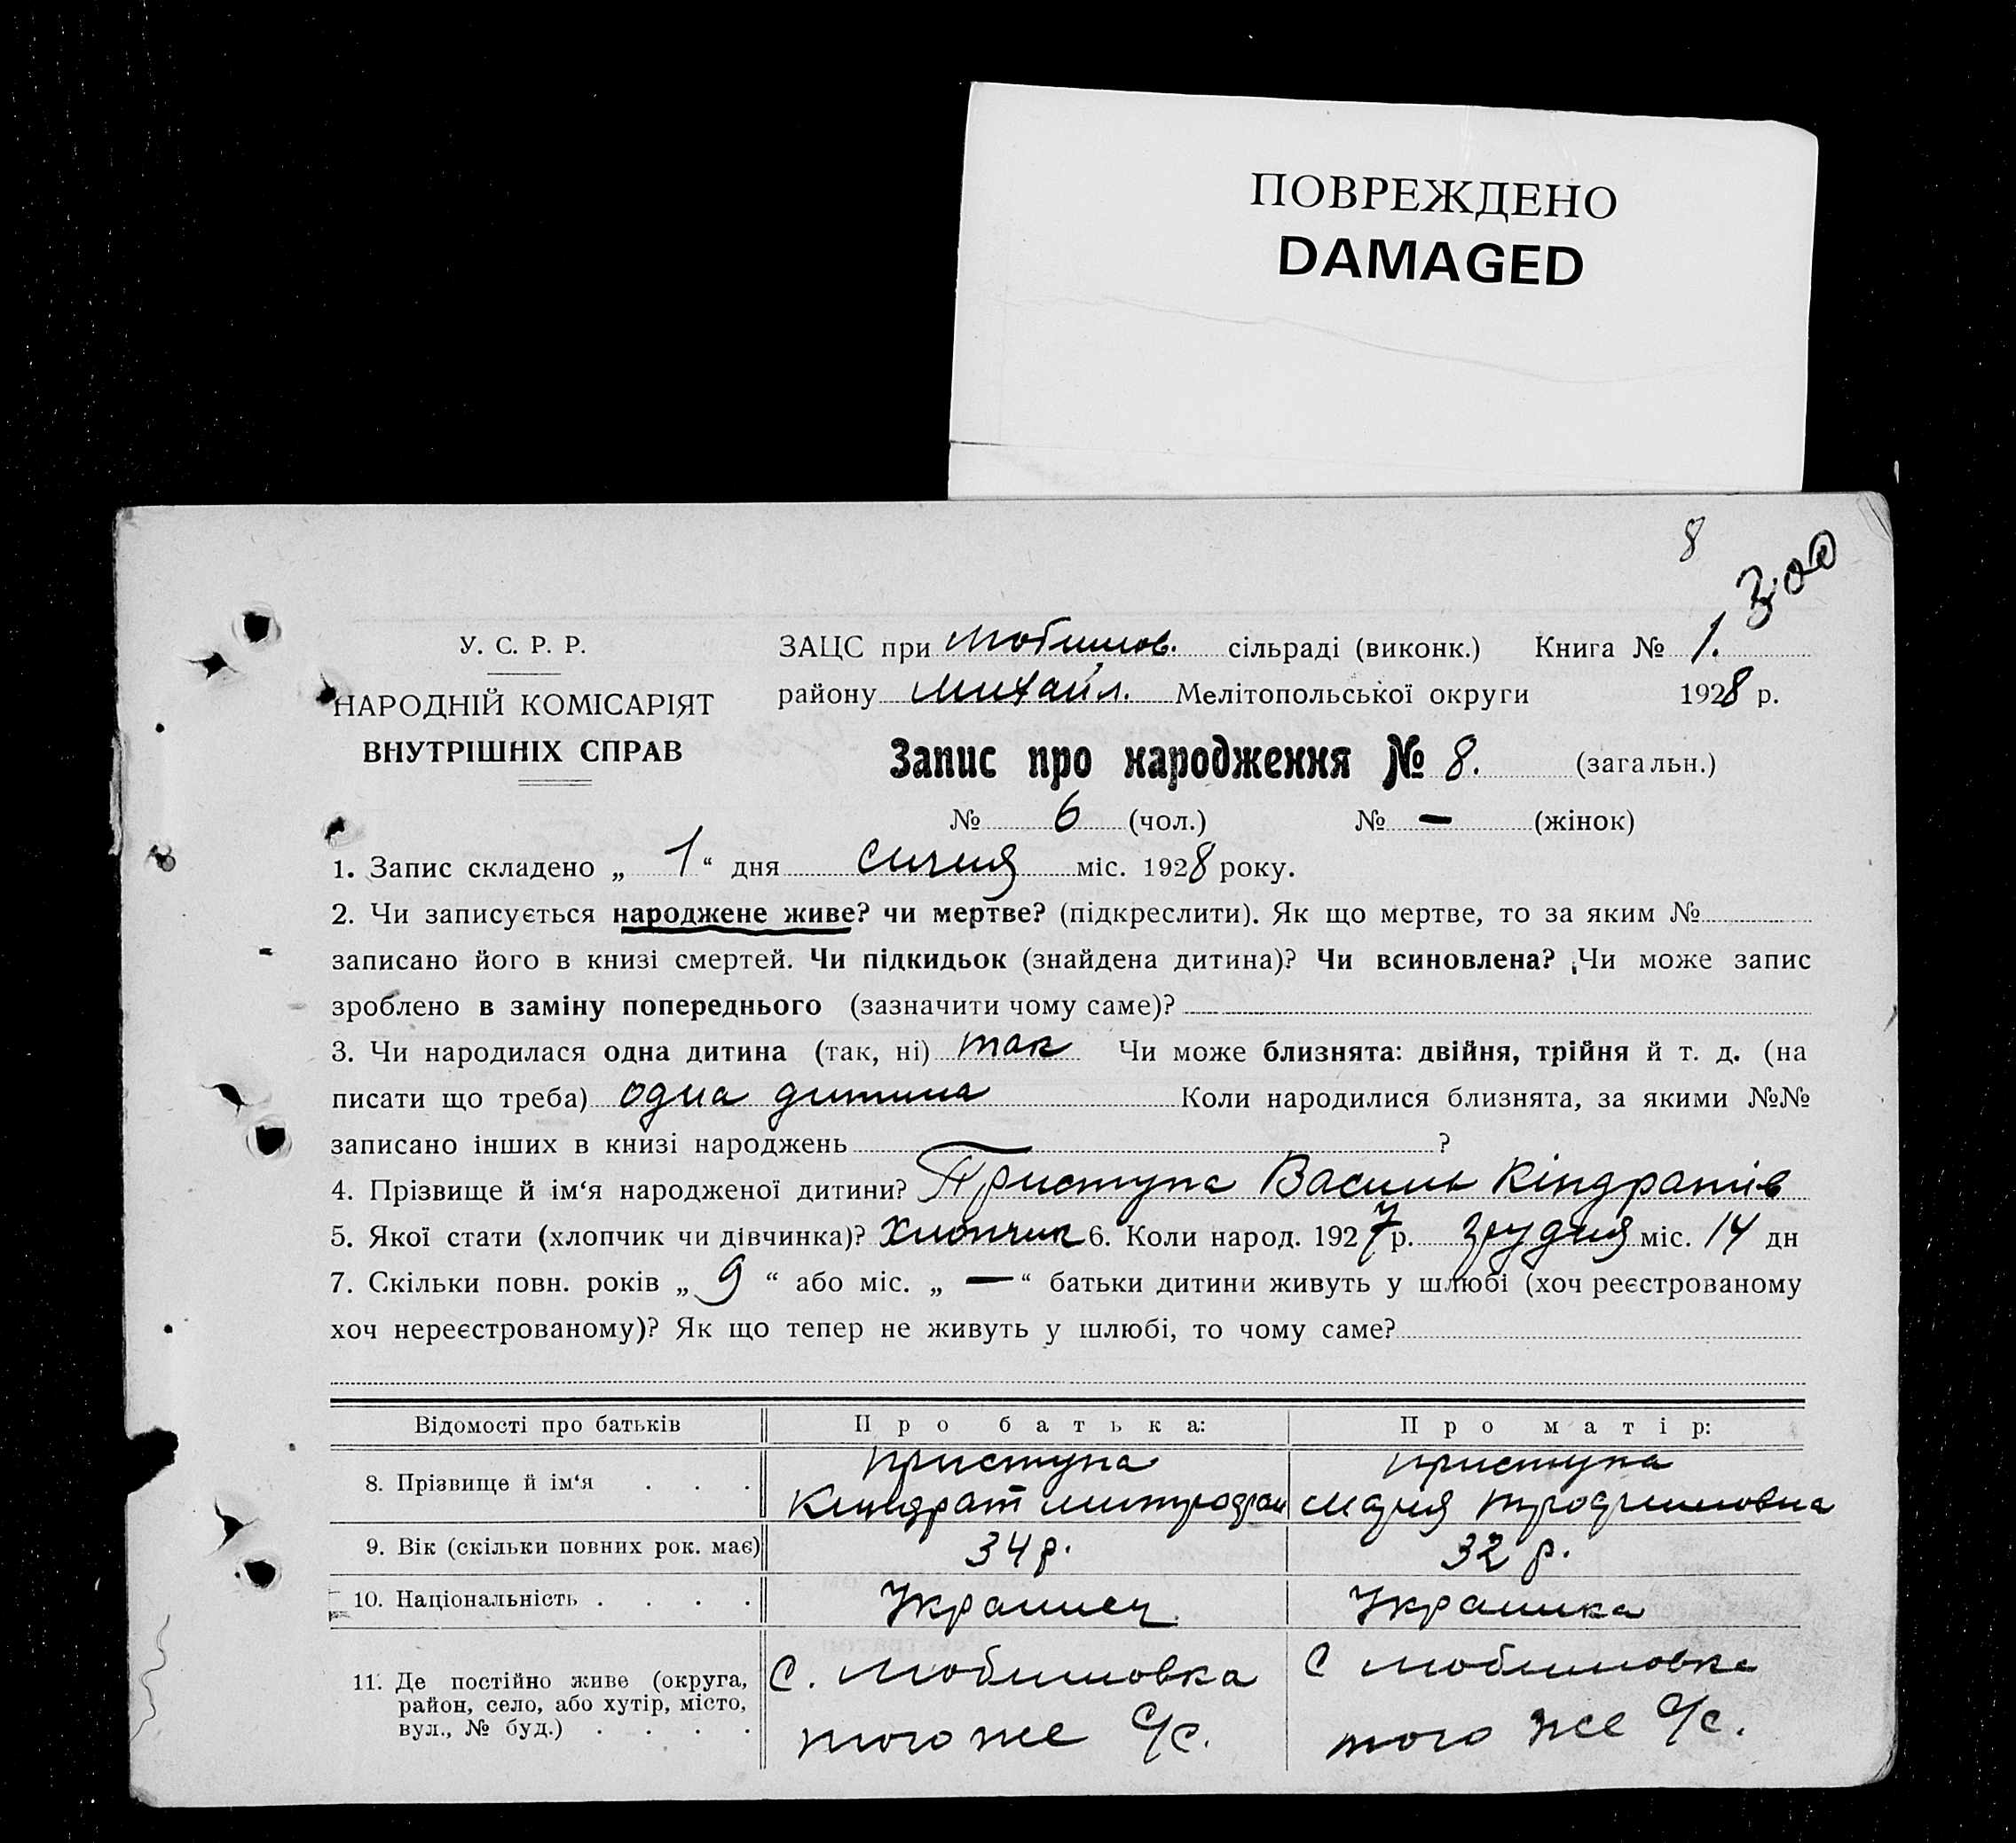 ПОВРЕЖДЕНО
DAMAGED
8
300
У. С. Р. Р.
НАРОДНІЙ КОМІСАРІЯТ
ВНУТРІШНІХ СПРАВ
ЗАЦС при Любимов. сільраді (виконк.) Книга № 1.
району Михайл. Мелітопольської округи 1928 р.
Запис про народження № 8. (загальн.)
№ 6 (чол.) № — (жінок)
1. Запис складено „ 1 “ дня січня міс. 1928 року.
2. Чи записується народжене живе? чи мертве? (підкреслити). Як що мертве, то за яким №
записано його в книзі смертей. Чи підкидьок (знайдена дитина)? Чи всиновлена? Чи може запис
зроблено в заміну попереднього (зазначити чому саме)?
3. Чи народилася одна дитина (так, ні) так Чи може близнята: двійня, трійня й т. д. (на
писати що треба) одна дитина Коли народилися близнята, за якими №№
записано інших в книзі народжень ?
4. Прізвище й ім‘я народженої дитини? Приступа Василь Кіндратів
5. Якої стати (хлопчик чи дівчинка)? Хлопчик 6. Коли народ. 1927 р. грудня міс. 14 дн
7. Скільки повн. років „ 9 “ або міс. „ — “ батьки дитини живуть у шлюбі (хоч реєстрованому
хоч нереєстрованому)? Як що тепер не живуть у шлюбі, то чому саме?
Відомості про батьків Про батька: Про матір:
8. Прізвище й ім‘я . . . Приступа Приступа
Киндрат
9. Вік (скільки повних рок. має) 34 р. 32 р.
10. Національність . . . . Украинец Украинка
11. Де постійно живе (округа, район, село, або хутір, місто, вул., № буд.) . . . . С. Любимовка С Любимовка
того же с/с. того же с/с.